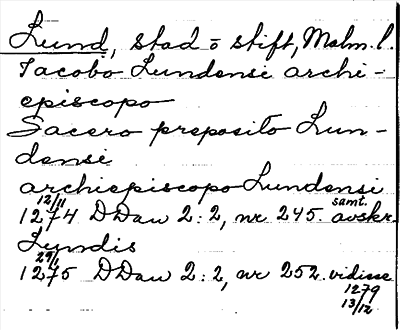 Lund, stad o stift, Malm. l.
Iacobo Lundensi archi-
episcopo
Sacero preposito Lun-
densi
archiepiscopo Lundensi
12/11 samt.
1274 DDan 2:2, nr 245. avskr.
Lundis
29/1
1275 DDan 2:2, nr 252. vidisse
1279
13/12